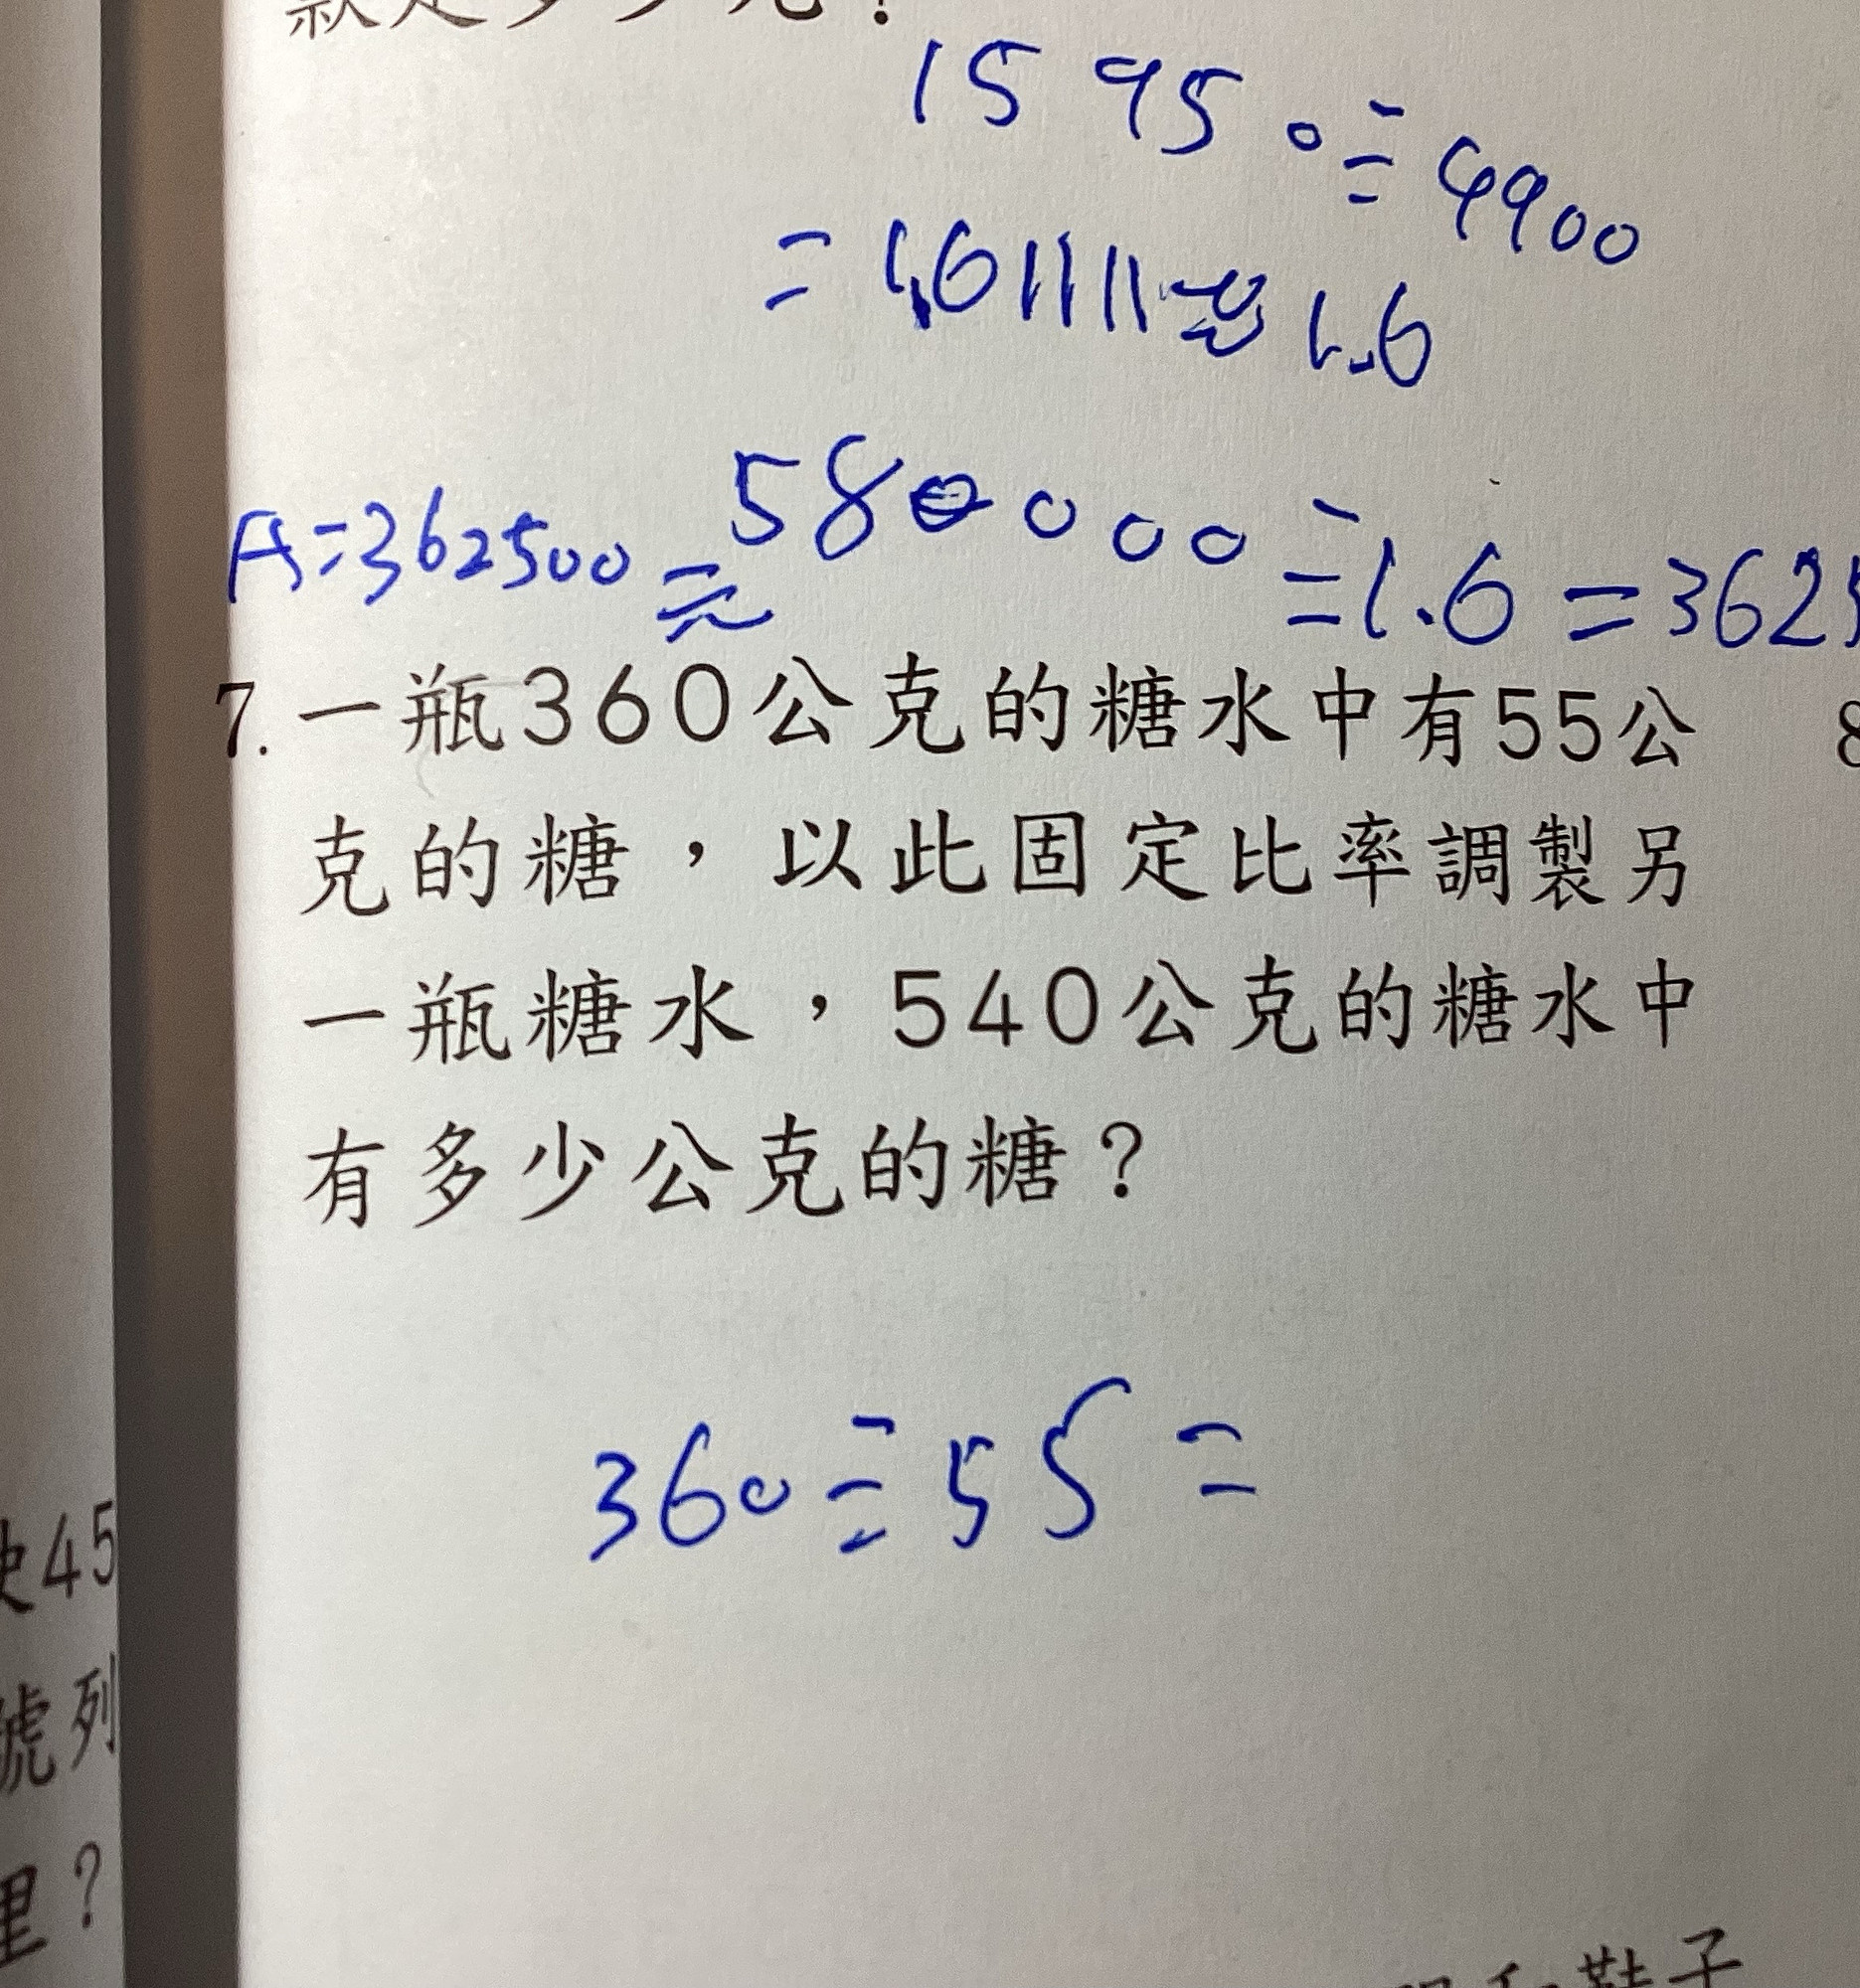 15950÷9900
=1.61111≈1.6
A=362500≈580000÷1.6=3625
7.一瓶360公克的糖水中有55公
克的糖，以此固定比率調製另
一瓶糖水，540公克的糖水中
有多少公克的糖？
360÷55=
45
號列
里？
鞋子